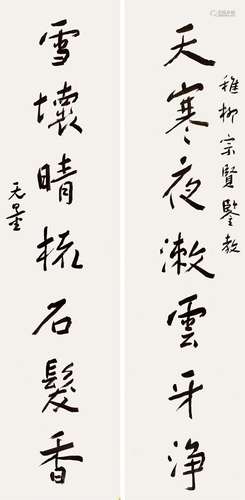 稚柳宗賢鑒教
天寒夜漱雲牙净
雪壞晴梳石髮香
无量